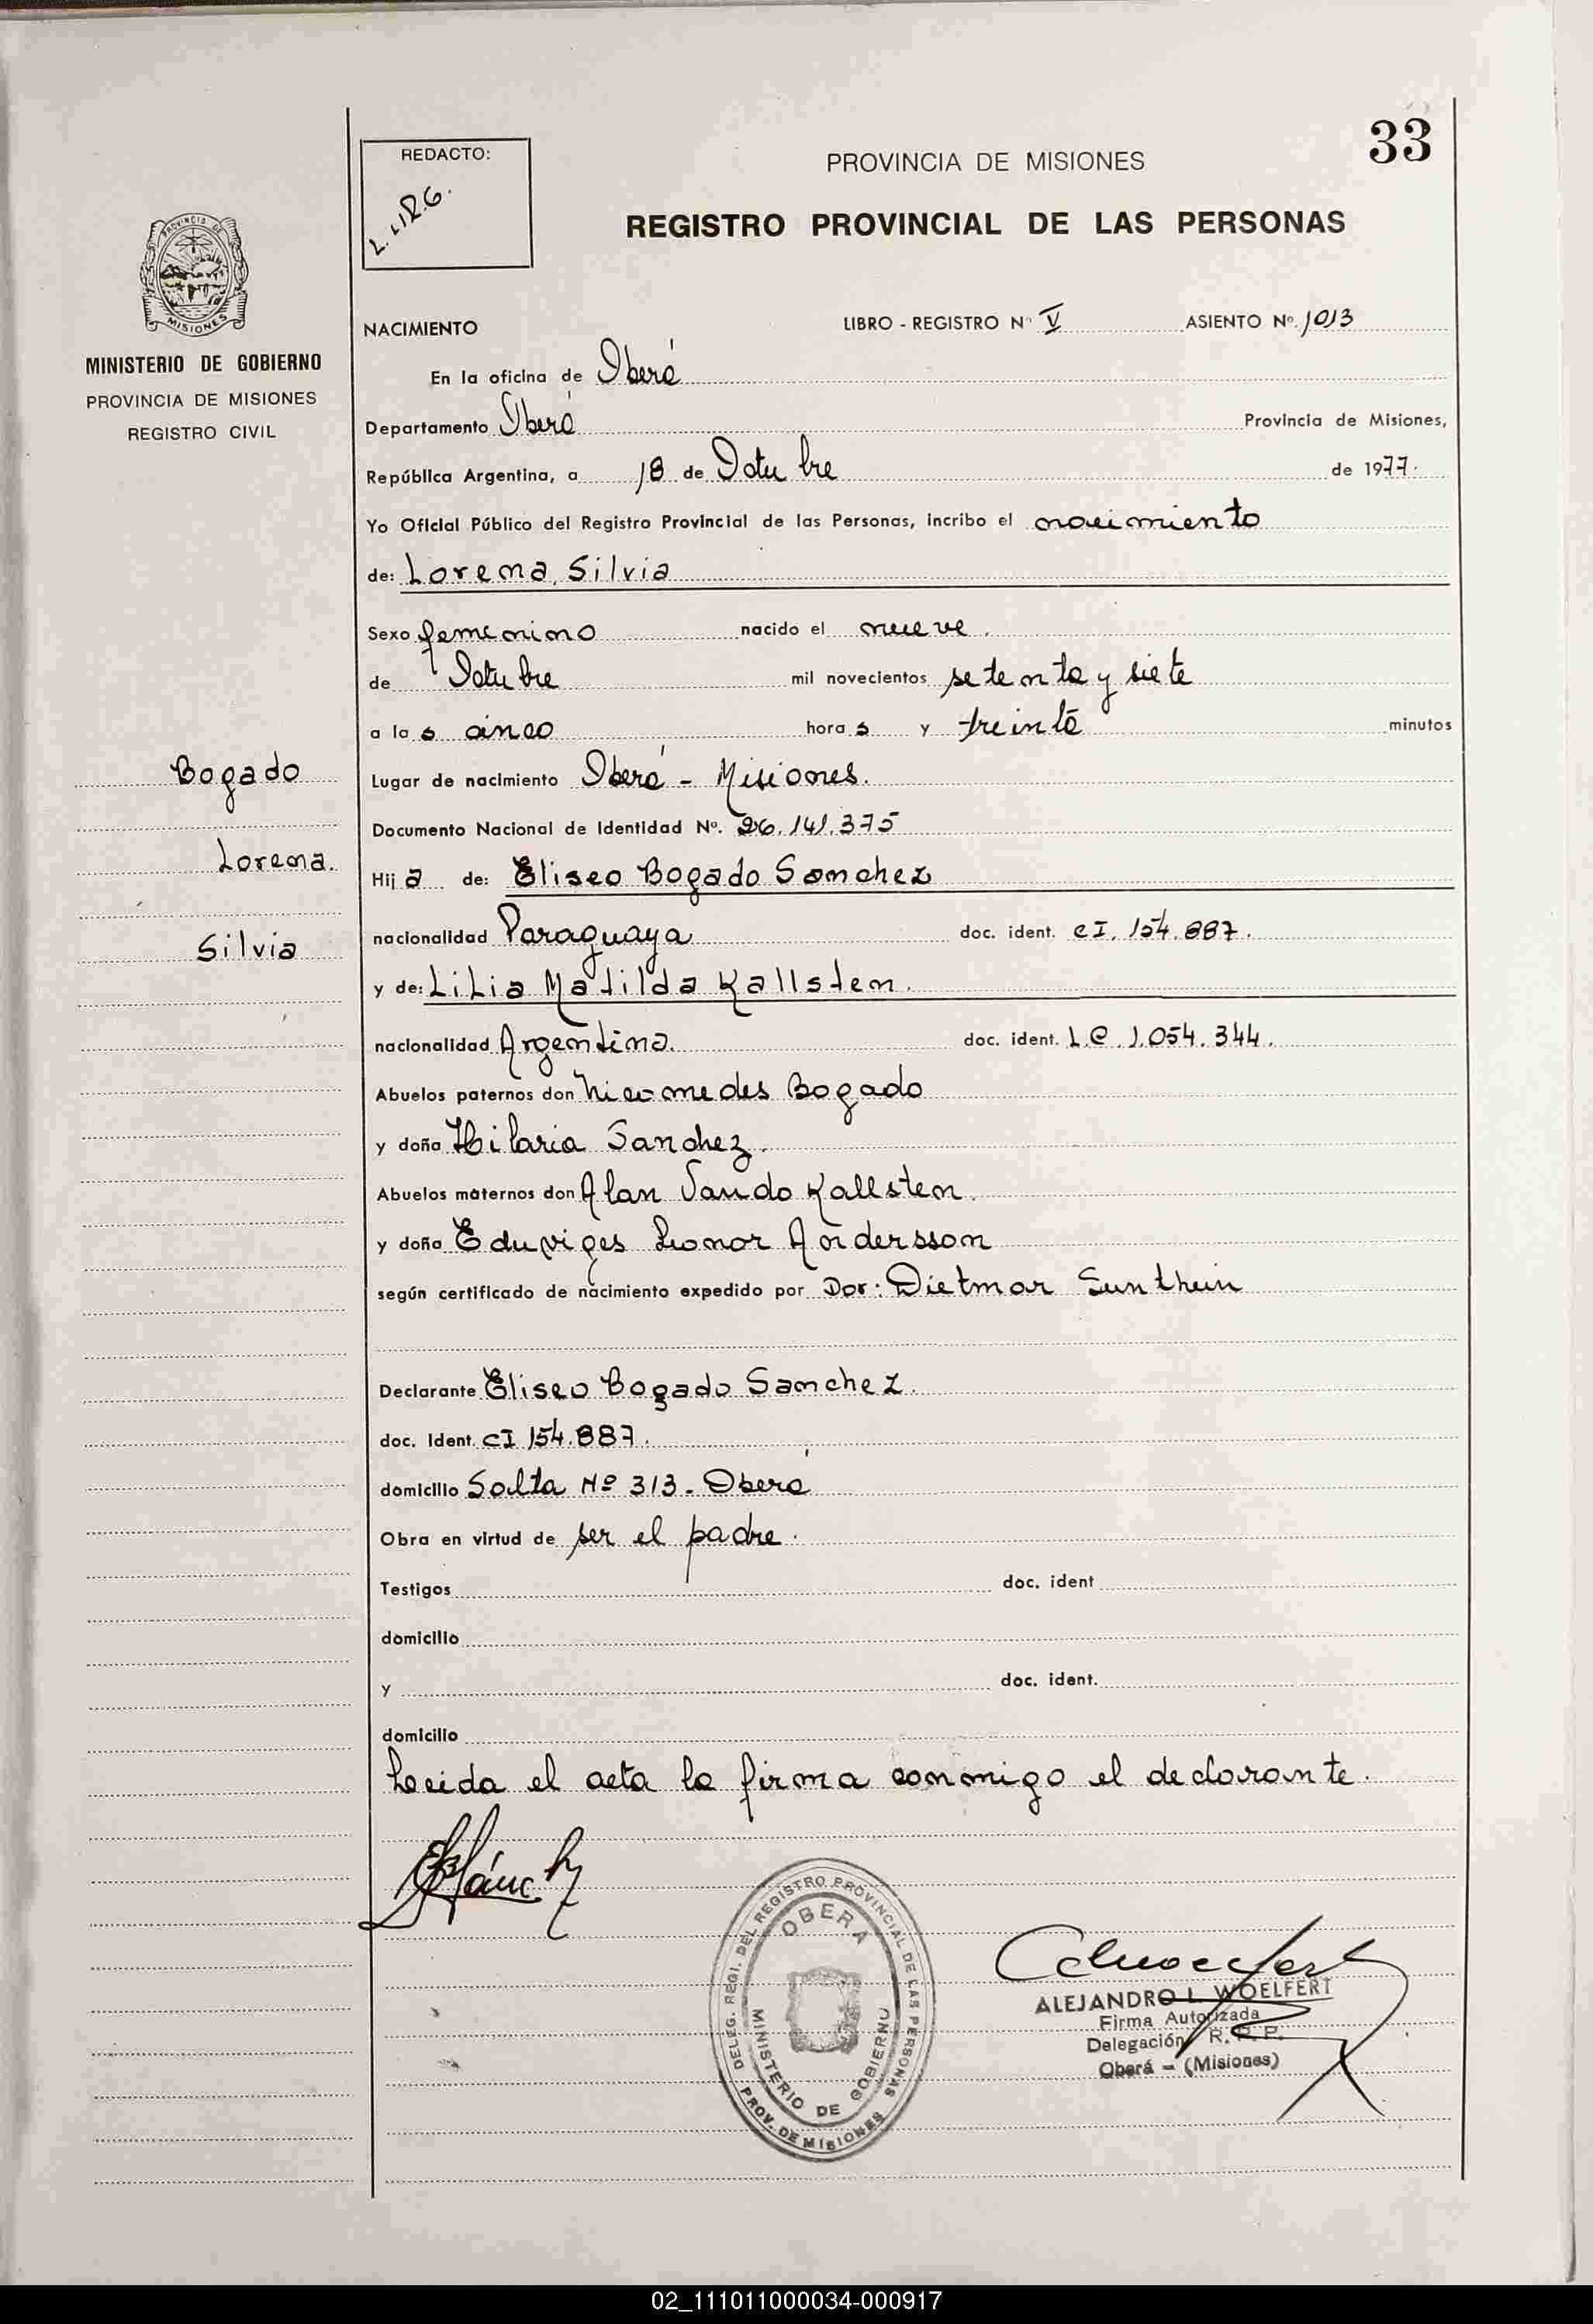 33
REDACTO:
PROVINCIA DE MISIONES
REGISTRO PROVINCIAL DE LAS PERSONAS
PROVINCIA DE
MISIONES
MINISTERIO DE GOBIERNO
PROVINCIA DE MISIONES
REGISTRO CIVIL
NACIMIENTO LIBRO - REGISTRO Nº V ASIENTO Nº. 1013
En la oficina de Oberá
Departamento Oberá Provincia de Misiones,
República Argentina, a 18 de Octubre de 1977.
Yo Oficial Público del Registro Provincial de las Personas, incribo el nacimiento
de: Lorena Silvia
Sexo femenino nacido el nueve.
de Octubre mil novecientos setenta y siete
a las cinco horas y treinta minutos
Bogado
Lorena.
Silvia
Lugar de nacimiento Oberá - Misiones.
Documento Nacional de Identidad Nº. 26.141.375
Hija de: Eliseo Bogado Sanchez
nacionalidad Paraguaya doc. ident. CI. 154.887.
y de: Lilia Matilda Kallsten.
nacionalidad Argentina. doc. ident. L.C. 1.054.344.
Abuelos paternos don Nicomedes Bogado
y doña Hilaria Sanchez.
Abuelos maternos don Alan Kallsten.
y doña Eduviges Leonor Andersson
según certificado de nacimiento expedido por Dor: Dietmar
Declarante Eliseo Bogado Sanchez.
doc. Ident. CI 154.887.
domicilio Salta Nº 313. Oberá
Obra en virtud de ser el padre.
Testigos doc. ident
domicilio
y doc. ident.
domicilio
Leida el acta la firma conmigo el declarante.
DELEG. REGI. DEL REGISTRO PROVINCIAL DE LAS PERSONAS
OBERA
MINISTERIO DE GOBIERNO
PROV. DE MISIONES
ALEJANDRO L. WOELFERT
Firma Autorizada
Delegación R. P. P.
Oberá - (Misiones)
02_111011000034-000917